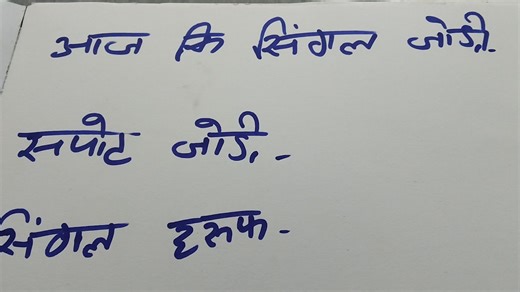 आज कि सिंगल जोडी.
सपोट जोडी.-
सिंगल हरूफ-